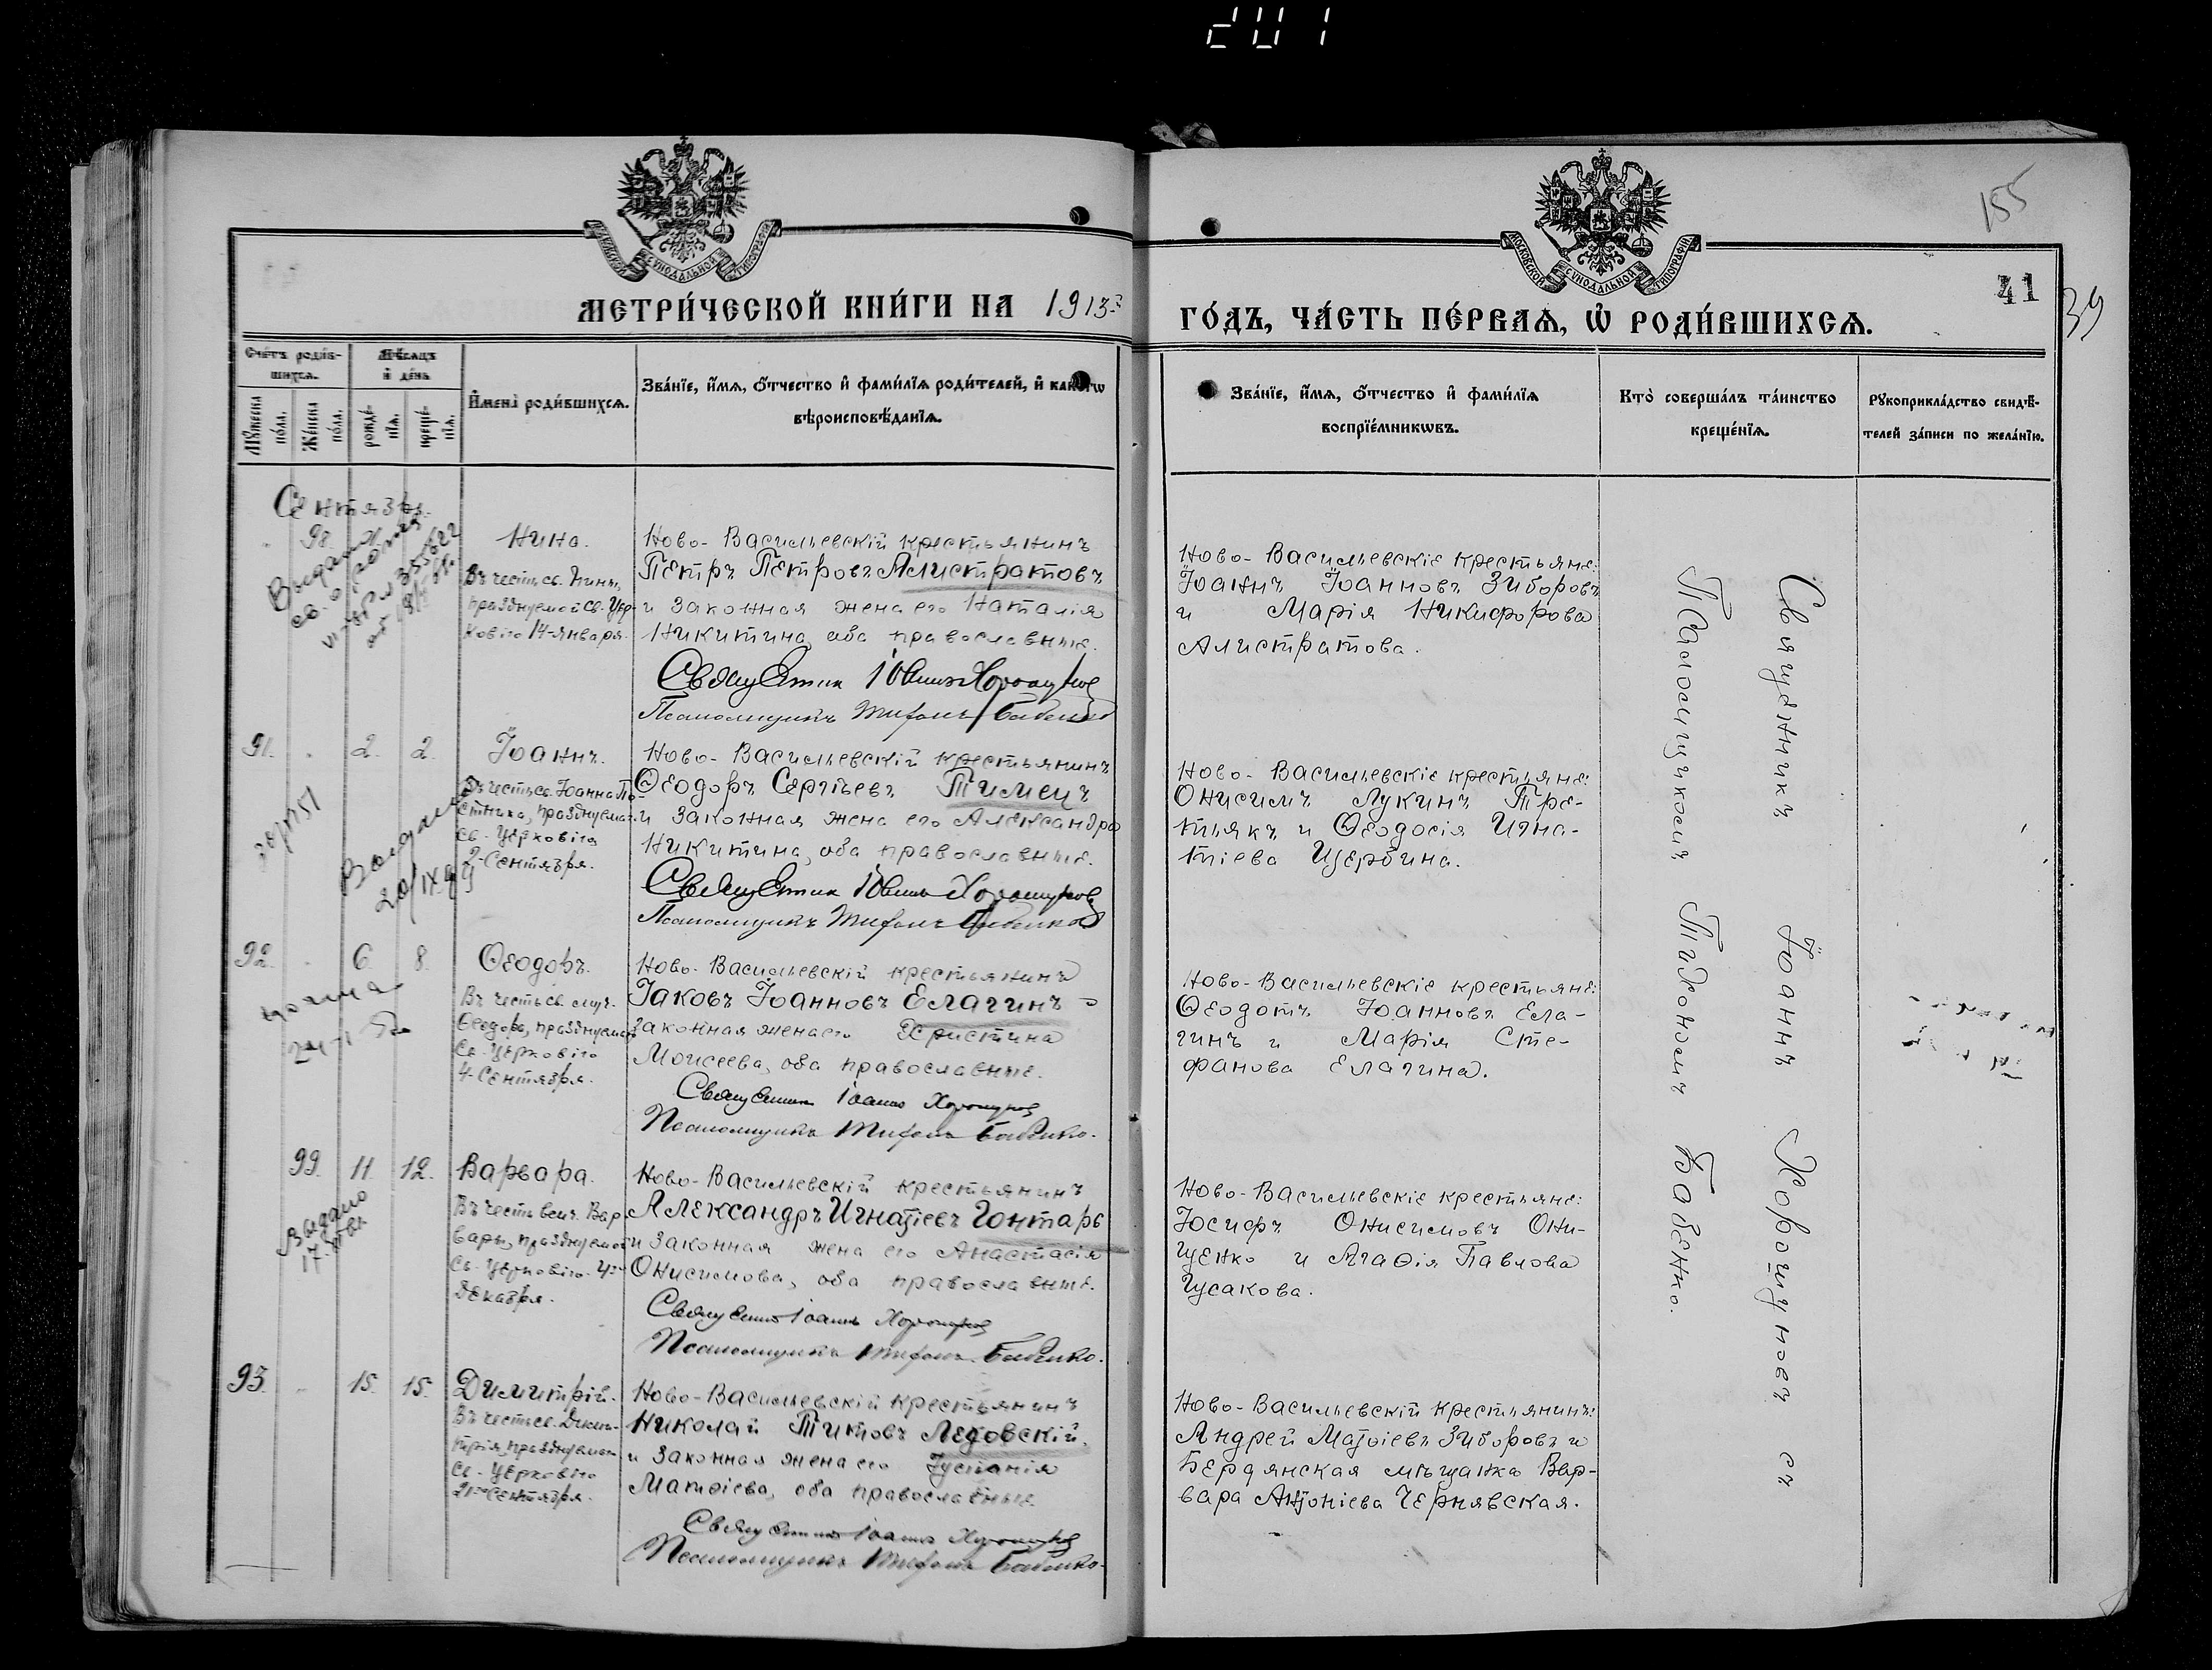 201
155
МОСКОВСКОЙ СѴНОДАЛЬНОЙ ТИПОГРАФІИ
МОСКОВСКОЙ СѴНОДАЛЬНОЙ ТИПОГРАФІИ
41
39
МЕТРИ́ЧЕСКОЙ КНИ́ГИ НА 1913
ГО́ДЪ, ЧА́СТЬ ПЕ́РВАѦ, Ѡ҆ РОДИ́ВШИХСѦ.
Сче́тъ роди́в-
шихсѧ.
Мѣ́сѧцъ
и҆ де́нь
Мꙋ́жеска
по́ла.
Же́нска
по́ла.
рожде́-
нїѧ.
креще́-
нїѧ.
И҆мена̀ роди́вшихсѧ.
Зва́нїе, и҆́мѧ, ѻ҆́тчество и҆ фами́лїѧ роди́телей, и҆ како́гѡ
вѣроисповѣ́данїѧ.
Зва́нїе, и҆́мѧ, ѻ҆́тчество и҆ фами́лїѧ
воспрїе́мникѡвъ.
Кто̀ соверша́лъ та́инство
креще́нїѧ.
Рꙋкоприкла́дство свидѣ́-
телей за́писи по жела́нїю.
Сентябрь.
98.
Нина.
Въ честь св. Нины,
празднуемой св. Цер-
ковію 14-января.
Ново-Васильевскій крестьянинъ
Петръ Петровъ Алистратовъ
и законная жена его Наталія
Никитина, оба православные.
Священникъ Іоаннъ Хорошуновъ
Псаломщикъ Тихонъ Бабенко
Ново-Васильевскіе крестьяне:
Іоаннъ Іоанновъ Зиборовъ
и Марія Никифорова
Алистратова.
91. 2. 2.
Іоаннъ.
Въ честь св. Іоанна По-
стника, празднуемаго
св. Церковію
2-Сентября.
30/IV 51
Выдано
20/IX
Ново-Васильевскій крестьянинъ
Ѳеодоръ Сергіевъ Тимецъ
и законная жена его Александра
Никитина, оба православные.
Священникъ Іоаннъ Хорошуновъ
Псаломщикъ Тихонъ Бабенко
Ново-Васильевскіе крестьяне:
Онисимъ Лукинъ Тре-
тьякъ и Ѳеодосія Игна-
тіева Щербина.
92. 6. 8.
Ѳеодоръ.
Въ честь св. муч.
Ѳеодора, празднуемаго
Св. Церковію
4-Сентября.
Ново-Васильевскій крестьянинъ
Іаковъ Іоанновъ Елагинъ
законная жена его Христина
Моисеева, оба православные.
Священникъ Іоаннъ Хорошуновъ
Псаломщикъ Тихонъ Бабенко.
Ново-Васильевскіе крестьяне:
Ѳеодотъ Іоанновъ Ела-
гинъ и Марія Сте-
фанова Елагина.
99. 11. 12.
Варвара.
Въ честь велм. Вар-
вары, празднуемой
Св. Церковію 4го
Декабря.
Выдано
Ново-Васильевскій крестьянинъ
Александръ Игнатіевъ Гонтарь
и законная жена его Анастасія
Онисимова, оба православные.
Священникъ Іоаннъ Хорошуновъ
Псаломщикъ Тихонъ Бабенко.
Ново-Васильевскіе крестьяне:
Іосифъ Онисимовъ Они-
щенко и Агаѳія Павлова
Гусакова.
93. 15. 15.
Димитрій.
Въ честь св. Дими-
трія, празднуемаго
Св. Церковію
21го Сентября.
Ново-Васильевскій крестьянинъ
Николай Титовъ Ледовскій,
и законная жена его Іустинія
Матѳіева, оба православные.
Священникъ Іоаннъ Хорошуновъ
Псаломщикъ Тихонъ Бабенко.
Ново-Васильевскій крестьянинъ:
Андрей Матѳіевъ Зиборовъ и
Бердянская мѣщанка Вар-
вара Антоніева Чернявская.
Священникъ Іоаннъ Хорошуновъ съ
Псаломщикомъ Тихономъ Бабенко.